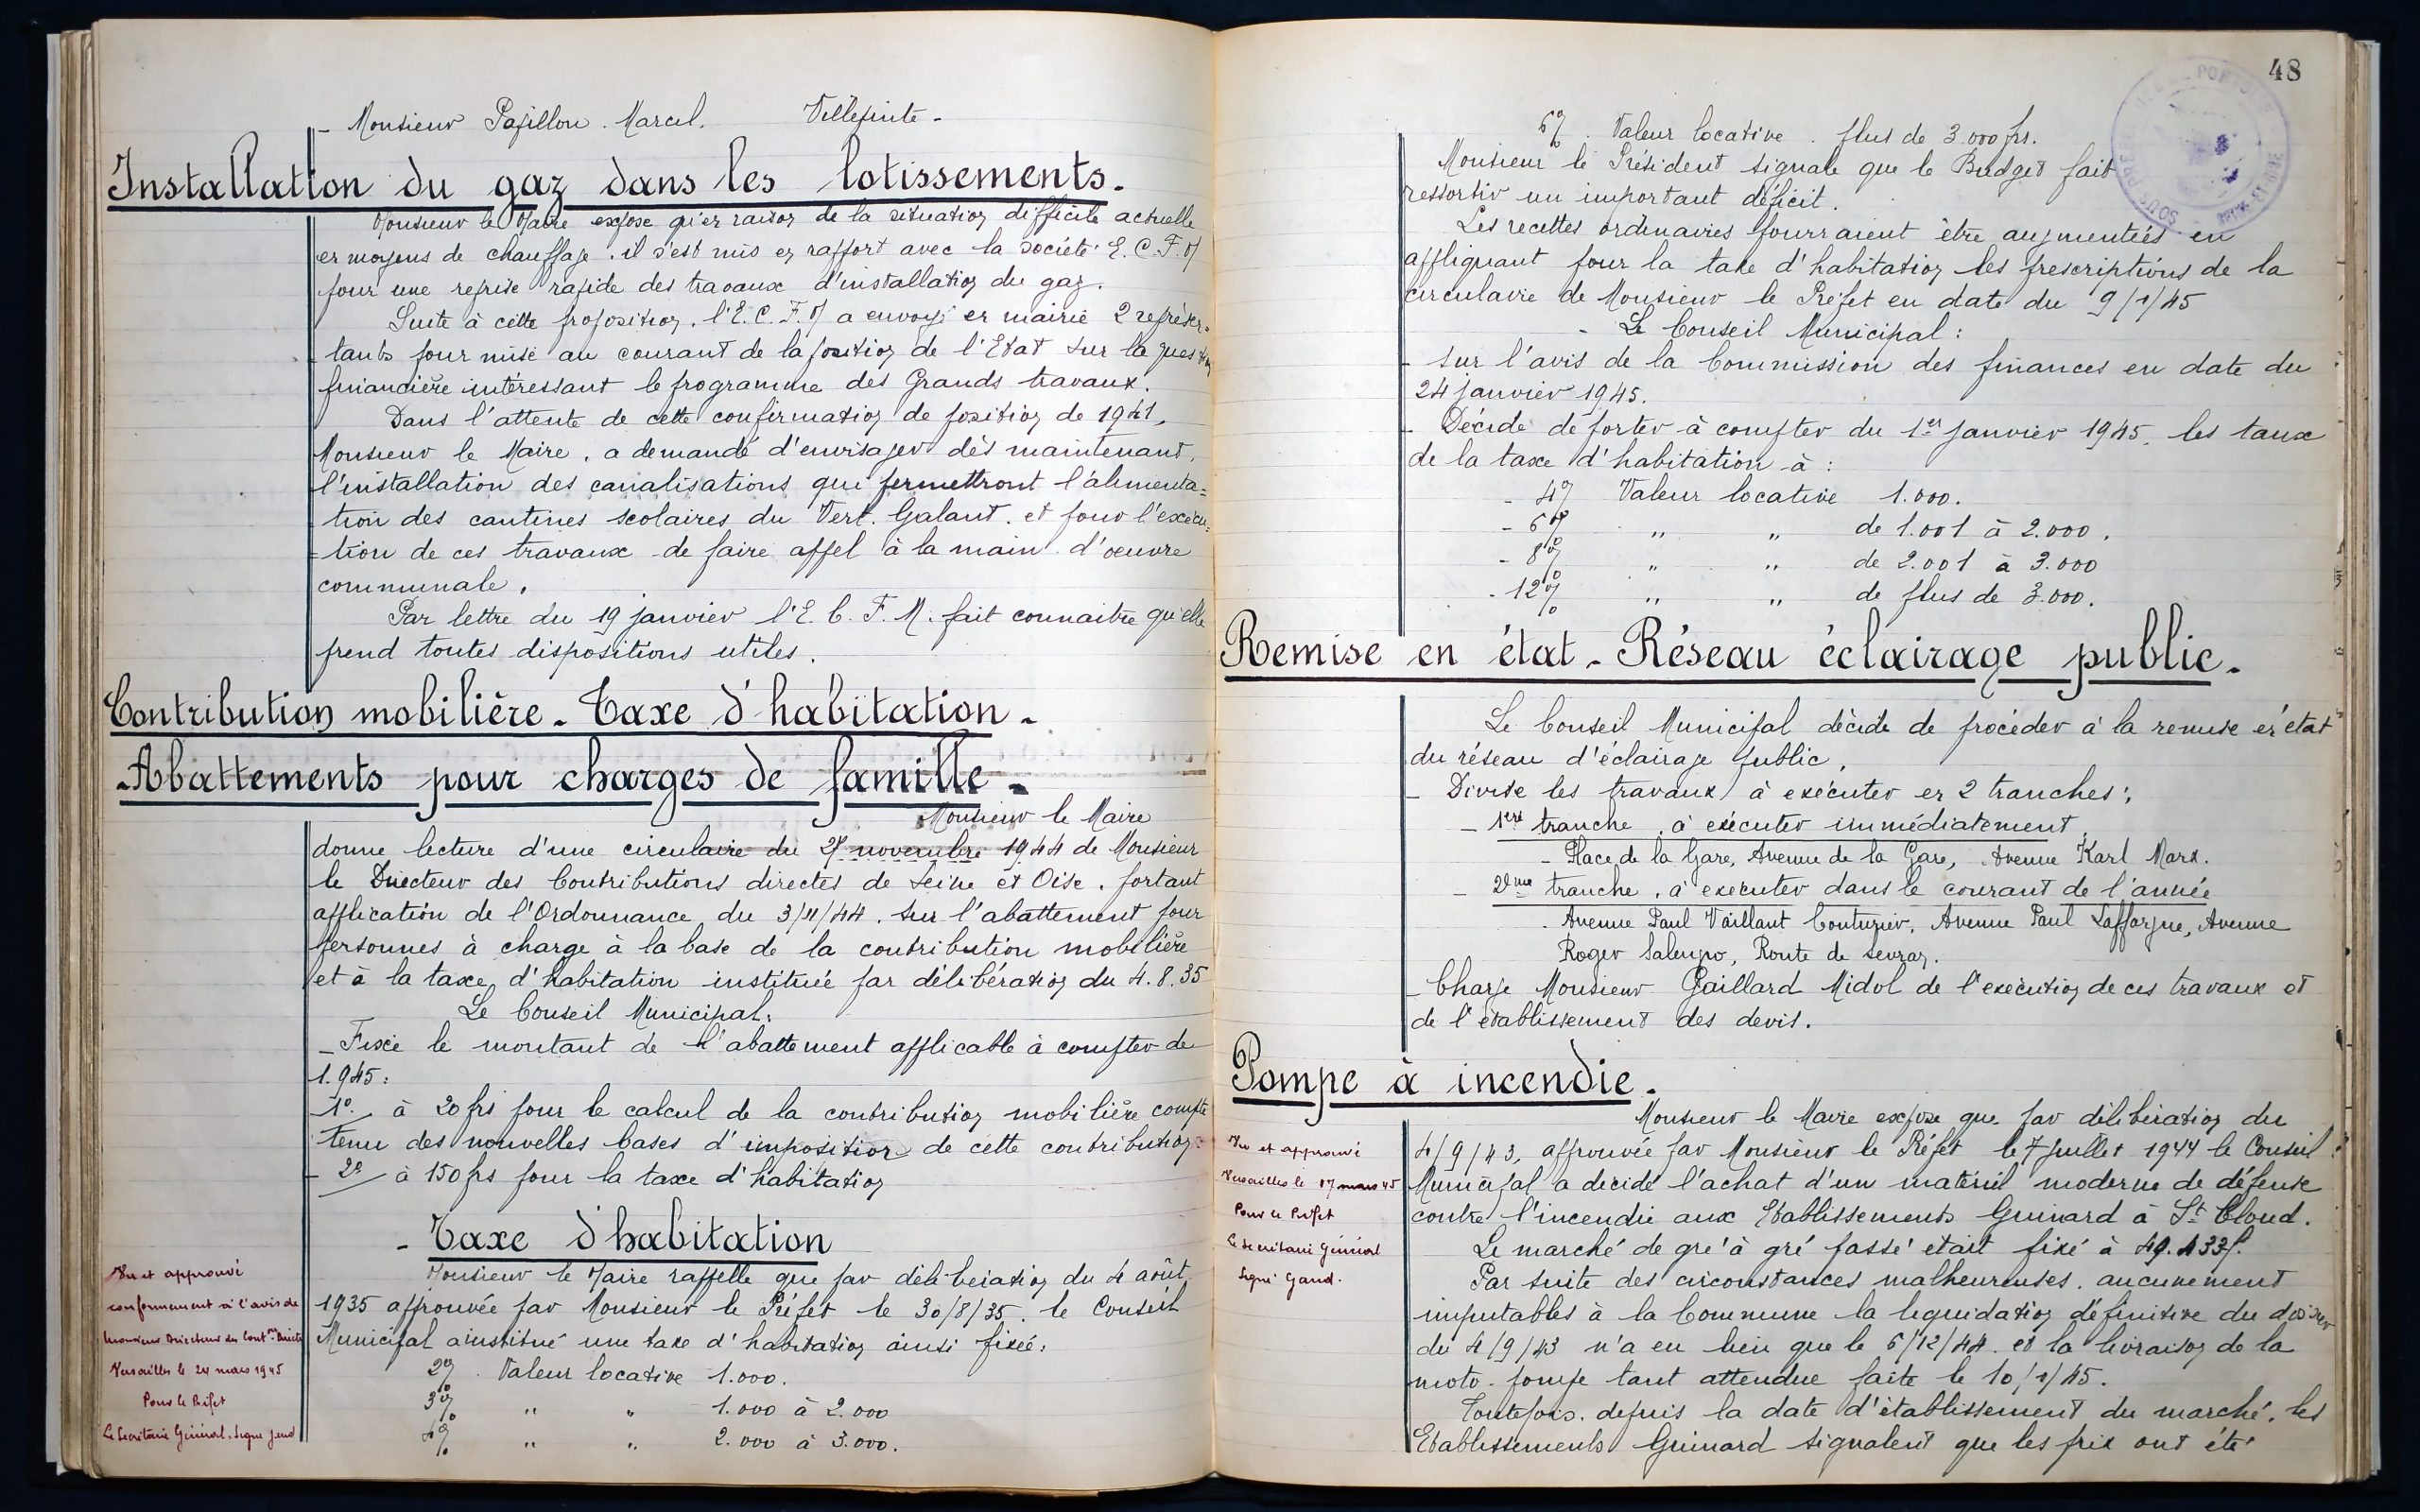 - Monsieur Papillon. Marcel. Villepinte -
Installation du gaz dans les lotissements.
Monsieur le Maire expose qu'en raison de la situation difficile actuelle
en moyens de chauffage. il s'est mis en rapport avec la société E.C.F.M
pour une reprise rapide des travaux d'installation du gaz.
Suite à cette proposition. l'E.C.F.M a envoyé en mairie 2 représen-
tants pour mise au courant de la position de l'Etat sur la question
financière intéressant le programme des Grands travaux.
Dans l'attente de cette confirmation de position de 1941,
Monsieur le Maire, a demandé d'envisager dès maintenant,
l'installation des canalisations qui permettront l'alimenta=
tion des cantines scolaires du Vert. Galant. et pour l'exécu=
=tion de ces travaux de faire appel à la main d'oeuvre
communale.
Par lettre du 19 janvier l'E.C.F.M. fait connaitre qu'elle
prend toutes dispositions utiles.
Contribution mobilière - Taxe d'habitation -
Abattements pour charges de famille -
Monsieur le Maire
donne lecture d'une circulaire du novembre 1944 de Monsieur
le Directeur des Contributions directes de Seine et Oise. portant
application de l'Ordonnance du 3/11/44. sur l'abattement pour
personnes à charge à la base de la contribution mobilière
et à la taxe d'habitation instituée par délibération du 4.8.35
Le Conseil Municipal:
- Fixe le montant de l'abattement applicable à compter de
1.945:
- 1° à 20 frs pour le calcul de la contribution mobilière compte
tenu des nouvelles bases d'imposition de cette contribution
- 2° à 150 frs pour la taxe d'habitation
- Taxe d'habitation
Monsieur le Maire rappelle que par délibération du 4 août
1935 approuvée par Monsieur le Préfet le 30/8/35. le Conseil
Municipal a institué une taxe d'habitation ainsi fixée:
2% Valeur locative 1.000.
3% " " 1.000 à 2.000
4% " " 2.000 à 3.000.
Vu et approuvé
conformément à l'avis de
Monsieur Directeur des Cont.ons Directes
Versailles le 24 mars 1945
Pour le Préfet
Le Secrétaire Général. Signé
48
6% Valeur locative. plus de 3.000 frs.
Monsieur le Président signale que le Budget fait
ressortir un important déficit.
Les recettes ordinaires pourraient être augmentées en
appliquant pour la taxe d'habitation les prescriptions de la
circulaire de Monsieur le Préfet en date du 9/1/45
- Le Conseil Municipal:
- sur l'avis de la Commission des finances en date du
24 janvier 1945.
- Décide de porter à compter du 1er janvier 1945, les taux
de la taxe d'habitation à:
- 4% Valeur locative 1.000.
- 6% " " de 1.001 à 2.000.
- 8% " " de 2.001 à 3.000
- 12% " " de plus de 3.000.
Remise en état - Réseau éclairage public -
Le Conseil Municipal décide de procéder à la remise en état
du réseau d'éclairage public.
- Divise les travaux à exécuter en 2 tranches:
- 1ère tranche, à exécuter immédiatement
- Place de la Gare, Avenue de la Gare, Avenue Karl Marx.
- 2ème tranche, à exécuter dans le courant de l'année
- Avenue Paul Vaillant Couturier, Avenue Paul Laffargue, Avenue
Roger Salengro, Route de Sevran.
- Charge Monsieur Gaillard Midol de l'exécution de ces travaux et
de l'établissement des devis.
Pompe à incendie.
Monsieur le Maire expose que par délibération du
4/9/43, approuvée par Monsieur le Préfet le 7 Juillet 1944 le Conseil
Municipal a décidé l'achat d'un matériel moderne de défense
contre l'incendie aux Etablissements Guinard à St Cloud.
Le marché de gré à gré passé était fixé à 49.433f.
Par suite des circonstances malheureuses. aucunement
imputables à la Commune la liquidation définitive du dossier
du 4/9/43 n'a eu lieu que le 6/12/44. et la livraison de la
moto-pompe tant attendue faite le 10/1/45.
Toutefois. depuis la date d'établissement du marché, les
Etablissements Guinard signalent que les prix ont été
Vu et approuvé
Versailles le 17 mars 45
Pour le Préfet
Le Secrétaire Général
Signé Gand.